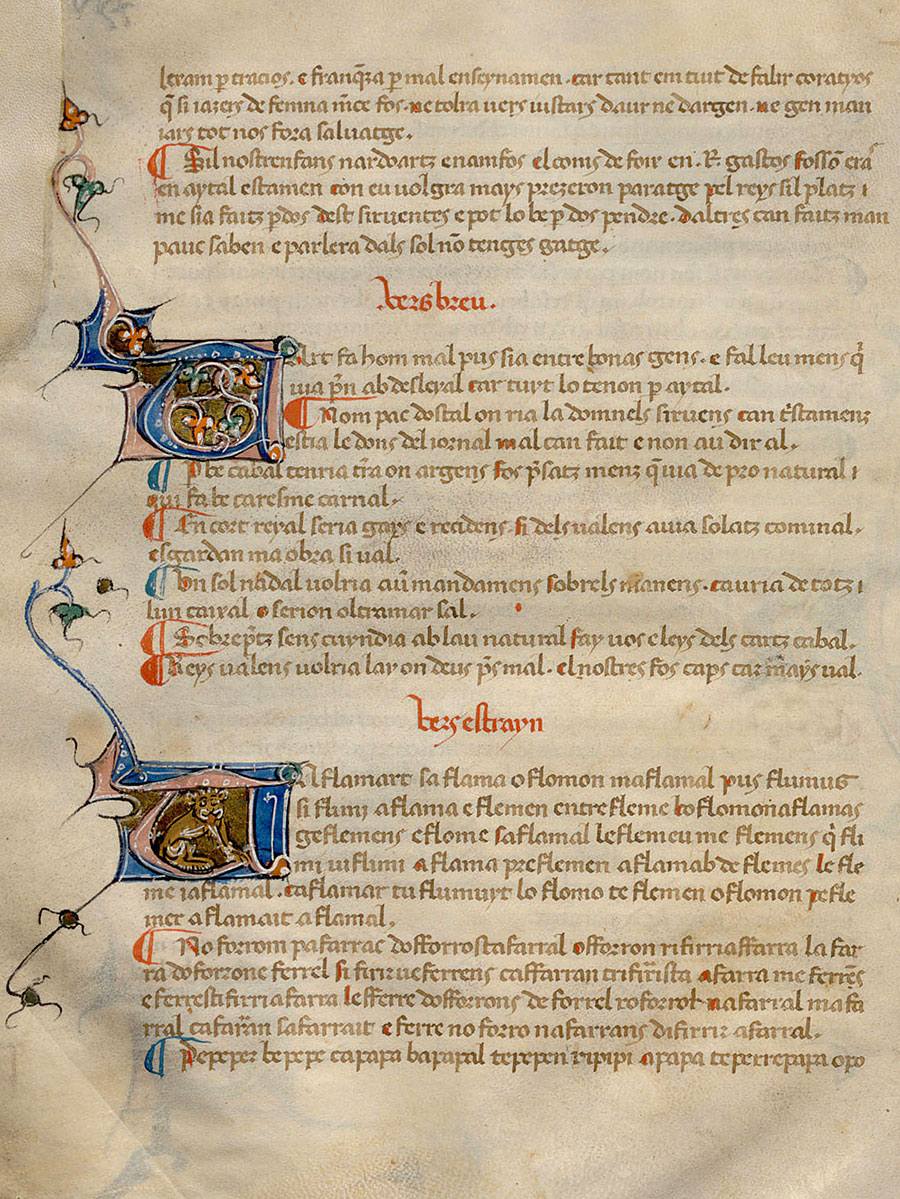 leram p tracios. e franq̃za p mal enseynamen. car tant em tuit de falir coratyos
q̃ si iazers de femna m̃ce fos. ne tolra uers uistars daur ne dargen. ne gen man
iars tot nos fora saluatge.
Sil nostrenfans nardoartz enamfos el coms de foix en. R. gastos fosson era
en aytal estamen con eu uolgra mays prezeron paratge pel reys sil platz i
me sia faitz p̃dos dest siruentes e pot lo be p dos pendre. daltres can faitz man
pauc saben e parlera dals sol nõ tenges gatge.
vers breu.
Art fa hom mal pus sia entre bonas gens. e fal leu mens q̃
uia p̃n ab desleral car tuyt lo tenon p aytal.
Nom pac dostal on ria la domnels siruens can estamenz
estia le dons del iornal mal can fait e non au dir al.
P be cabal tenria tr̃a on argens fos p̃satz menz q̃ uia de pro natural i
qui fa be caresme carnal.
En cort reyal seria gays e recidens. si dels ualens auia solatz cominal.
esgardan ma obra si ual.
Un sol nadal uolria aũ mandamens sobrels manens. cauria de totz i
lun caixal o serion oltramar sal.
Sobreptz sens cuyndia ab lau natural fay uos e leys dels cartz cabal.
Reys ualens uolria lay on deus p̃s mal. el nostres fos caps car mays ual.
vers estrayn
A flamart sa flama o flomon ma flamal pus flumus
si flimi a flama e flemen entre fleme lo flomon a flamas
ge flemens e flome sa flamal le flemeu me flemens q̃ fli
mi ui flimi a flama pre flemen a flamab de flemes le fle
me ia flamal. ca flamar tu flumuyt lo flomo te flemen o flomon pe fle
met a flamait a flamal.
No forrom pa farrac do fforrosta farral o fforron ri firri a ffarra la far
ra do forron e ferrel si firir ue ferrens ca ffarran tri firrista a farra me ferrẽs
e ferresti firri a farra le fferre do fforrons de forrel ro forrot na farral ma fa
rral ca farran sa farrait e ferre no forro na farrans di firrir a farral.
Pe pepez be pepe ca papa ba papal te pepen ri pipi a papa te perre papa o po